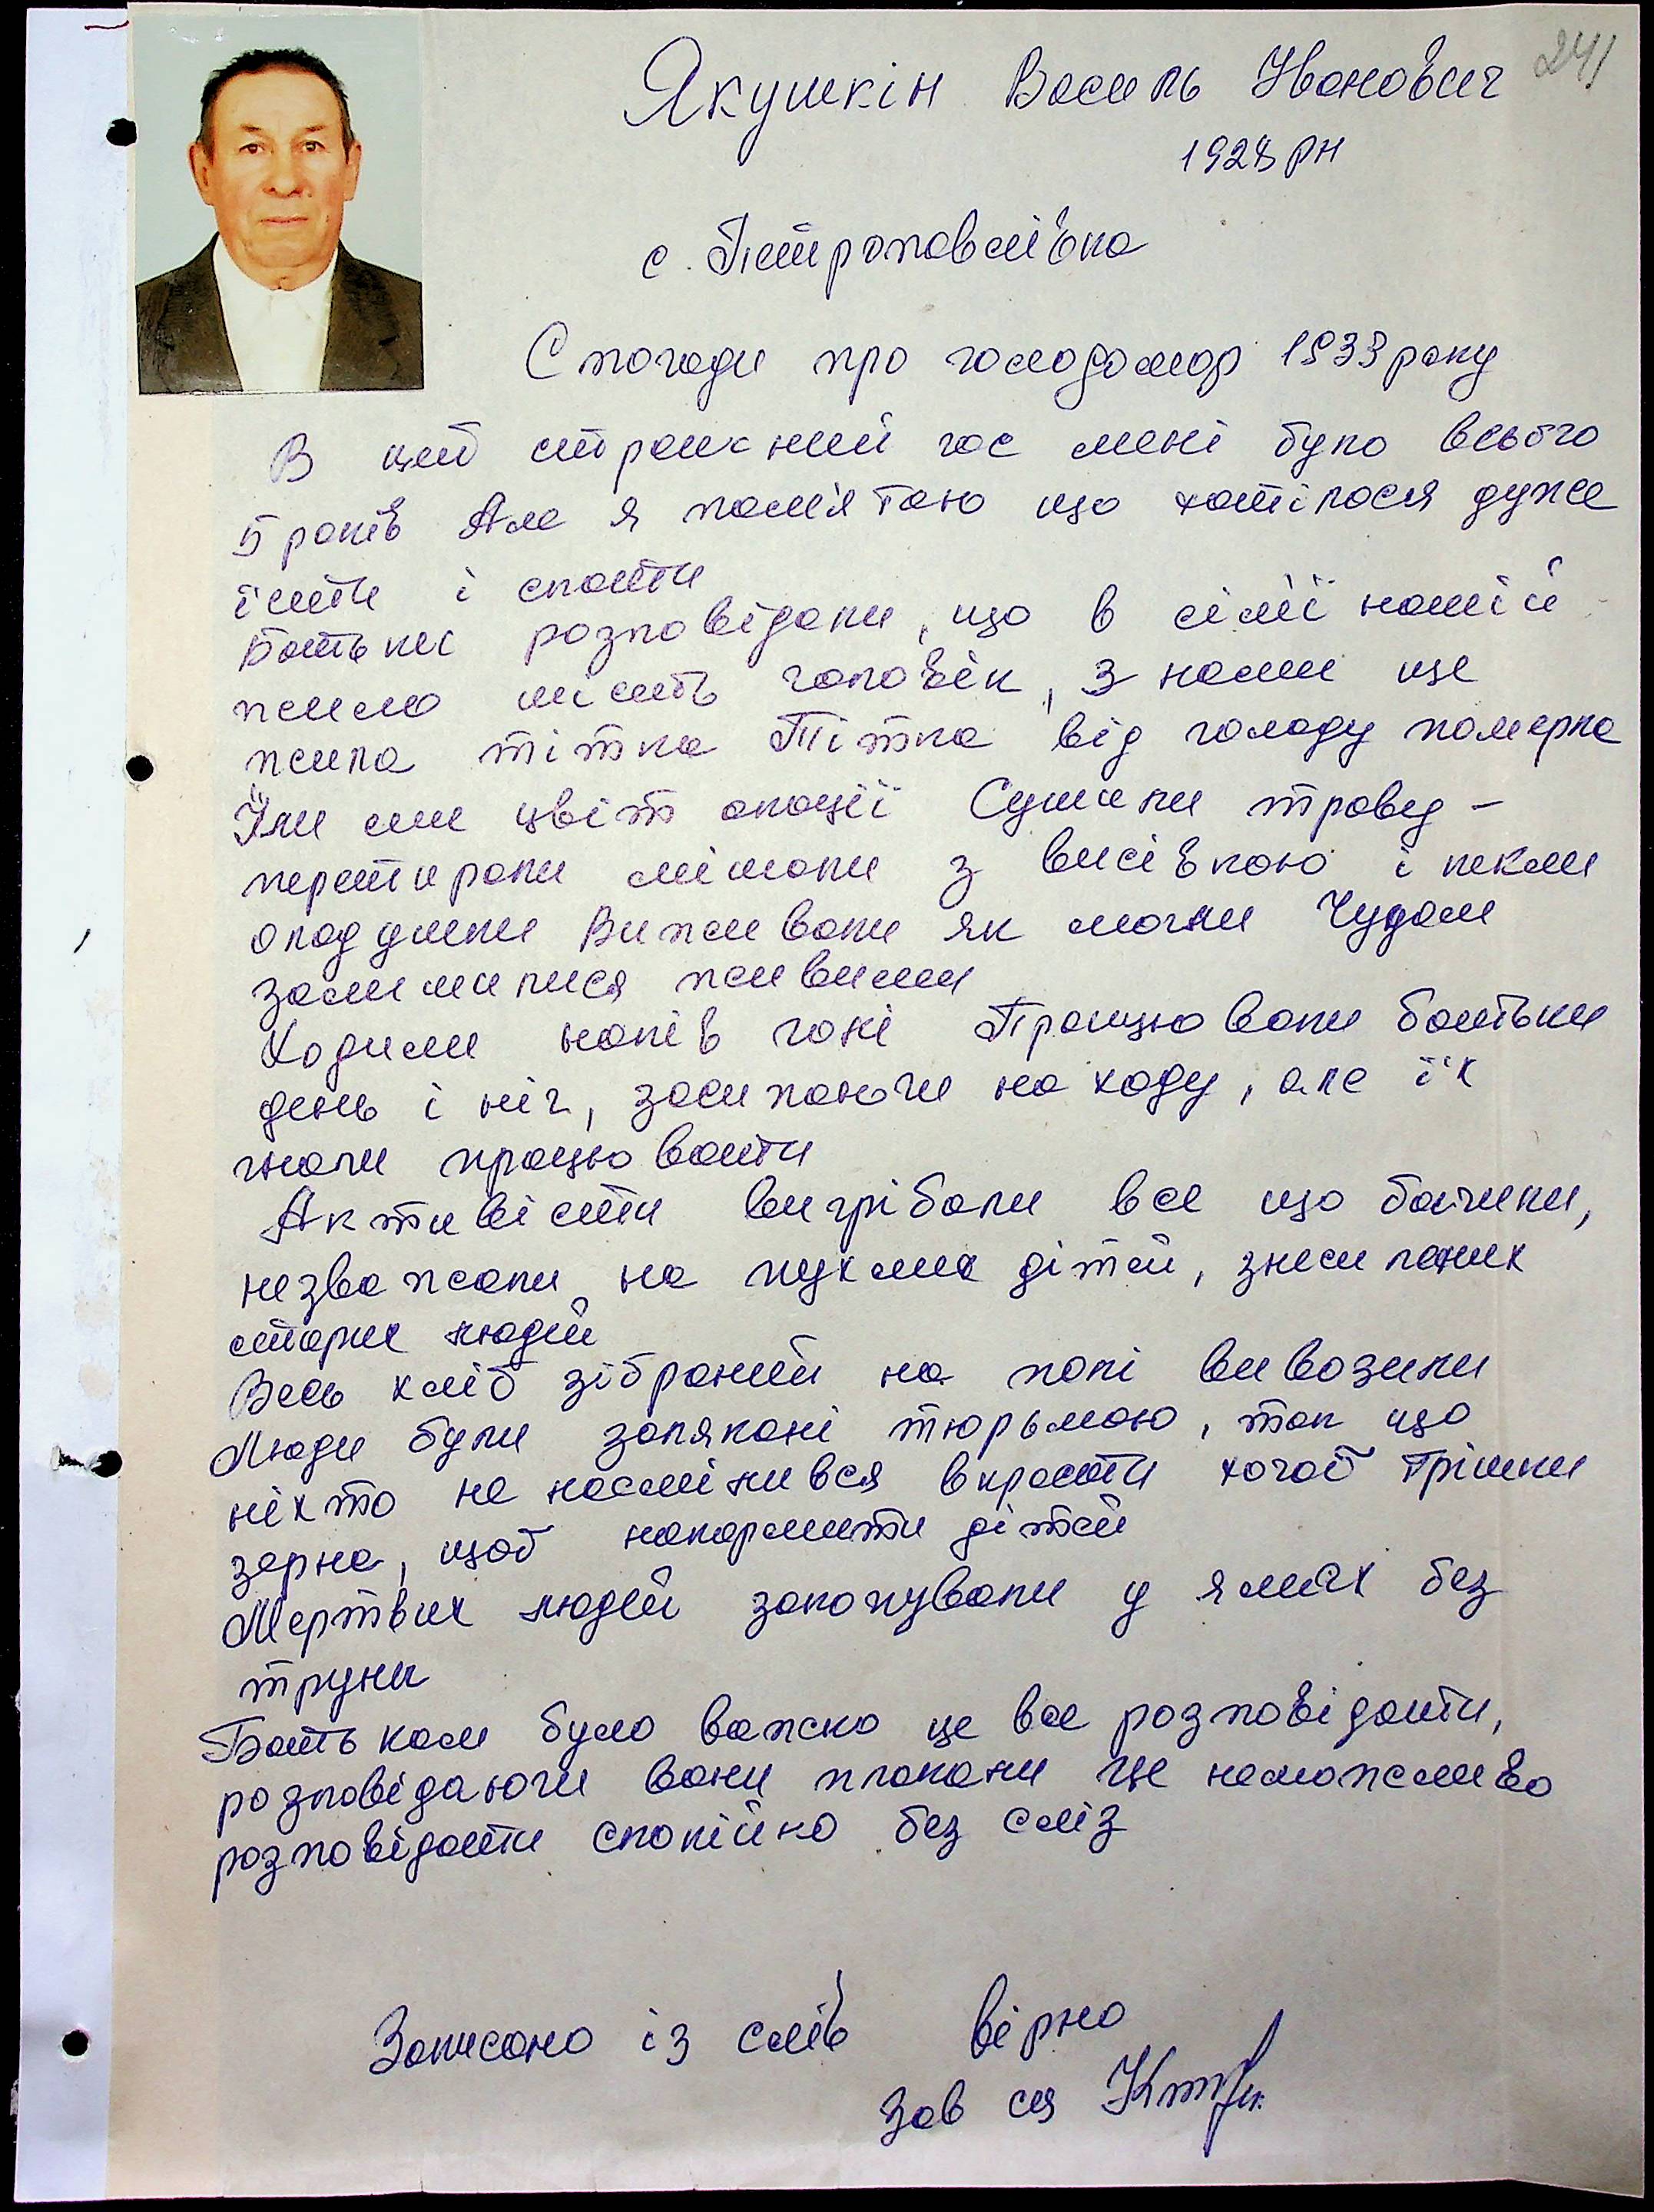 241
Якушкін Василь Іванович
1928 рн
с. Петропавлівка
Спогади про голодомор 1933 року
В цей страшний час мені було всього
5 років Але я пам'ятаю що хотілося дуже
їсти і спати
Батьки розповідали, що в сім'ї нашій
жило шість чоловік, з нами ще
жила тітка Тітка від голоду померла
Їли ми цвіт акації Сушили траву –
перетирали мішали з висівкою і пекли
оладдики Виживали як могли Чудом
залишилися живими
Ходили напів голі Працювали батьки
день і ніч, засипаючи на ходу, але їх
гнали працювати
Активісти вигрібали все що бачили,
незважали на пухлих дітей, знесилених
старих людей
Весь хліб зібраний на полі вивозили
Люди були залякані тюрьмою, так що
ніхто не насмілився вкрасти хочаб трішки
зерна, щоб накормити дітей
Мертвих людей закопували у ямах без
труни
Батькам було важко це все розповідати,
розповідаючи вони плакали Це неможливо
розповідати спокійно без сліз
Записано із слів вірно
Зав